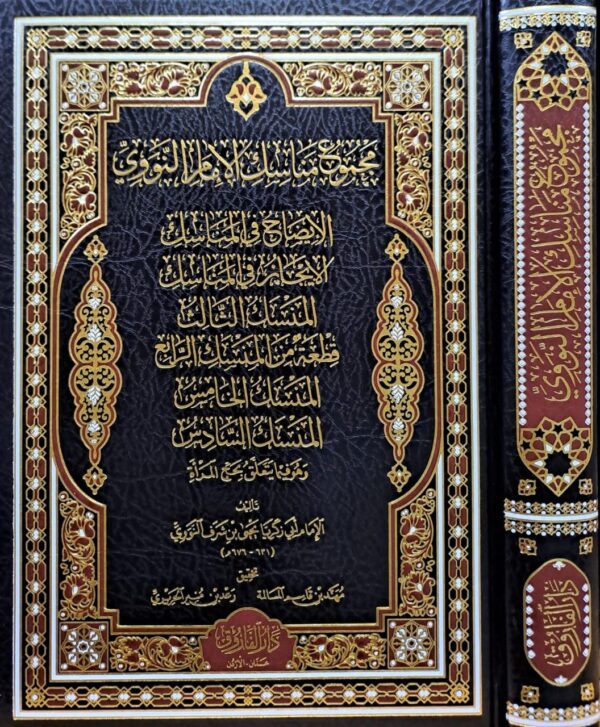 مجموع مناسك الإمام النووي
الإيضاح في المناسك
الإيجاز في المناسك
المنسك الثالث
قطعة من المنسك الرابع
المنسك الخامس
المنسك السادس
وهو فيما يتعلق بحج المرأة
تأليف
الإمام أبي زكريا يحيى بن شرف النووي
(٦٣١-٦٧٦هـ)
تحقيق
مهند بن قاسم المسالمة وعد بن محمد الحريري
دار الفاروق
عمان - الأردن
مجموع مناسك الإمام النووي
دار الفاروق